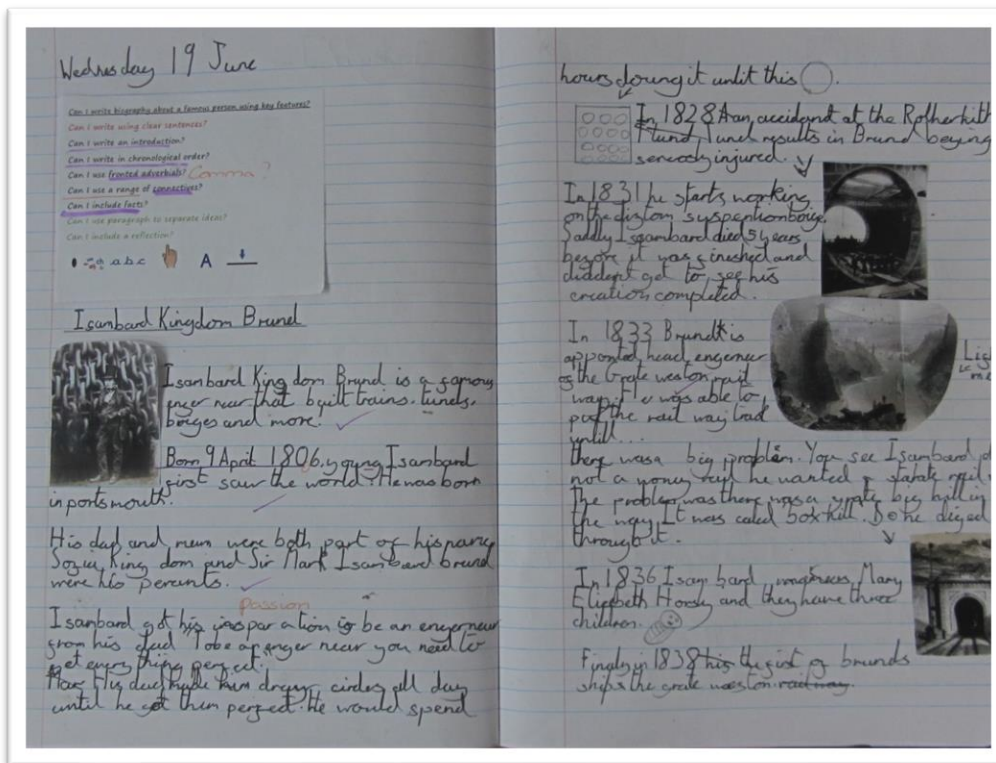 Wednesday 19 June
Can I write biography about a famous person using key features?
Can I write using clear sentences?
Can I write an introduction?
Can I write in chronological order?
Can I use fronted adverbials? Comma?
Can I use a range of connectives?
Can I include facts?
Can I use paragraph to separate ideas?
Can I include a reflection?
a b c A
Isambard Kingdom Brunel
Isambard King dom Brunel is a famous
enger near that built trains, tunels,
briges and more.
Born 9 April 1806, young Isambard
first saw the world. He was born
in portsmouth.
His dad and mum were both part of his name
King dom and Sir Mark Isambard brunel
were his perants.
passion
Isambard got his inspar ation to be an engerneer
from his dad. To be a enger near you need to
get everything perfect.
His dad made him draw circles all day
until he got them perfect. He would spend
hours doung it untill this
In 1828 an accident at the Rotherhith
tunel results in Brunel beying
seriously injured.
In 1831 he starts working
on the suspenhonboige.
Saddly Isambard died 5 years
before it was finished and
diddent get to see his
creation completed.
In 1833 Brunel is
apponted head engerneer
of the Grate weston rail
way. He was able to
put the rail way trad
untill...
there was a big problem. You see Isambard
not a yoney rail he wanted a rail
The problem was there was a grate big hill in
the way. It was caled box hill. So he diged
through it.
In 1836 Isam bard Mary
Elizabeth Horsly and they have three
children.
Finaly in 1838 the first of brunels
ships the grate weston railway